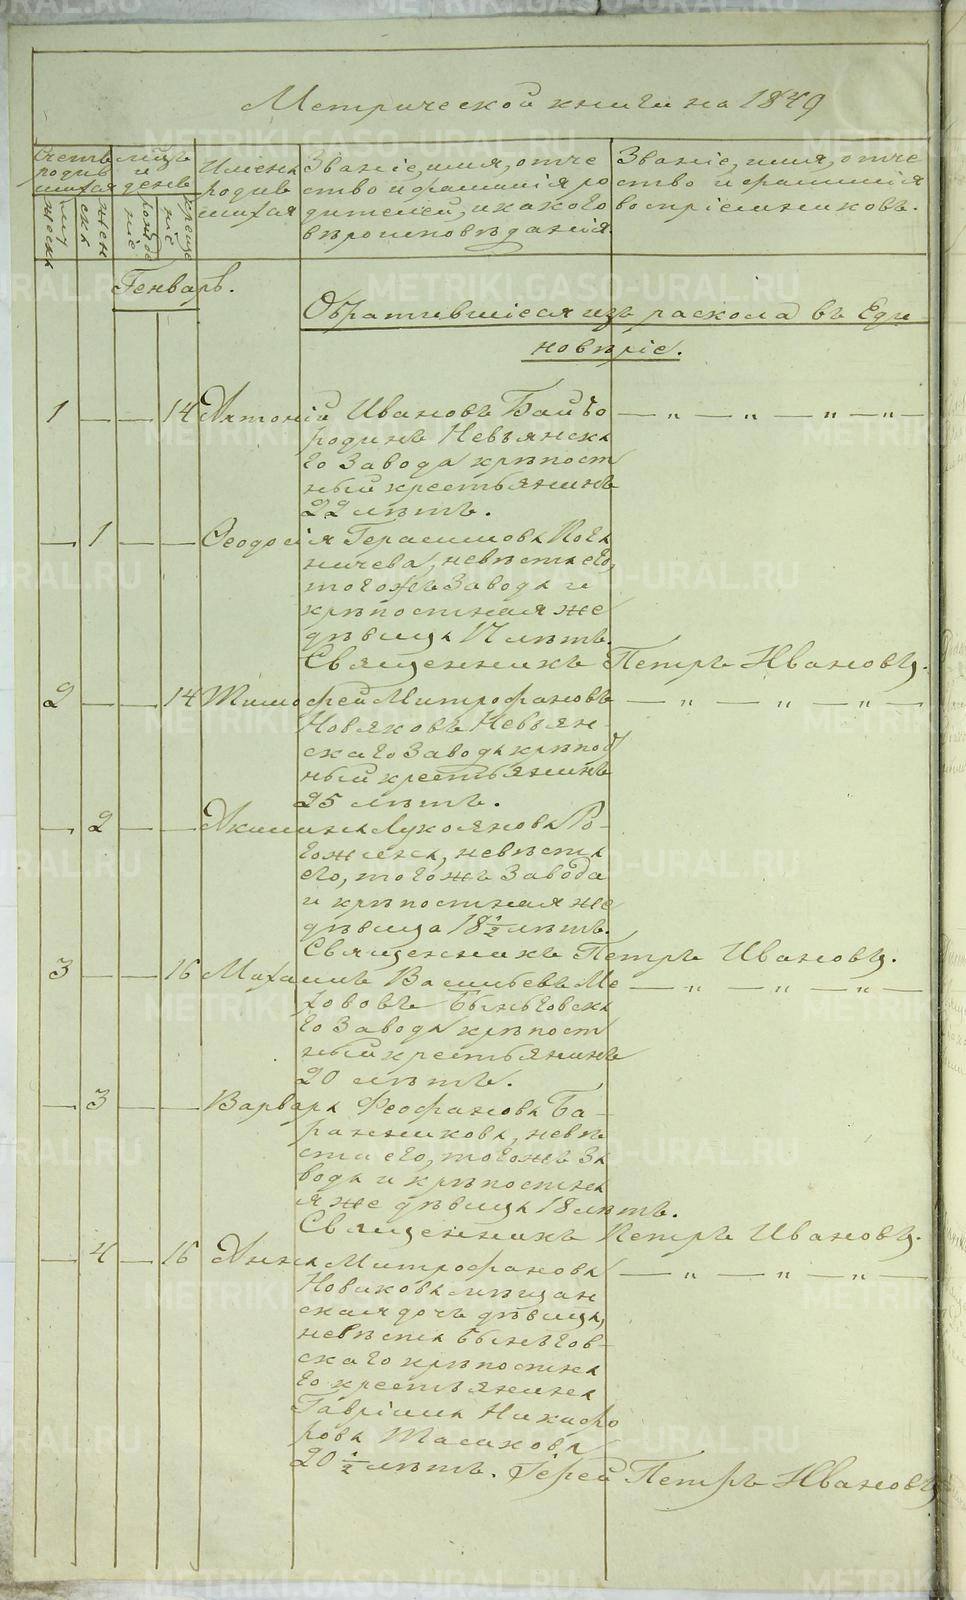 Метрической книги на 1849
Счетъ родившихся
мужеска
женск
Мѣсяцъ и день
рожденіе
крещеніе
Имена
родив
шихся
Званіе, имя, отче
ство и фамилія ро
дителей, и какого
вѣроисповѣданія.
Званіе, имя, отче
ство и фамилія
воспріемниковъ.
Генварь.
Обратившіеся изъ раскола въ Еди
новѣріе.
1 — — 14 Антоній Ивановъ Байбо — „ — „ — „ — „ —
родинъ Невьянска
го Завода крѣпост
ный крестьянинъ
22 лѣтъ.
— 1 — — Ѳеодосія Герасимова
ничева, невѣста его,
тогожъ Завода и
крѣпостная же
дѣвица 17 лѣтъ.
Священникъ Петръ Ивановъ.
2 — — 14 Тимофей Митрофановъ — „ — „ — „ —
Новяковъ Невьян-
скаго Завода крѣпос
ный крестьянинъ
25 лѣтъ.
— 2 — — Акилина Лукоянова Ро-
гожина, невѣста
его, тогожъ Завода
и крѣпостная же
дѣвица 18 1/2 лѣтъ.
Священникъ Петръ Ивановъ.
3 — — 16 Михаилъ Васильевъ Ме — „ — „ — „ —
ховъ Быньговска
го Завода крѣпост
ный крестьянинъ
20 лѣтъ.
— 3 — — Варвара Феофанова Ба-
ранникова, невѣ
ста его, тогожъ За
вода и крѣпостна
я же дѣвица 18 лѣтъ.
Священникъ Петръ Ивановъ.
— 4 — 16 Анна Митрофанова — „ — „ — „ —
Новикова мѣщан
ская дочь дѣвица,
невѣста Быньгов-
скаго крѣпостна
го крестьянина
Гавріила Никифо
рова
20 1/2 лѣтъ. Іерей Петръ Ивановъ
METRIKI.GASO-URAL.RU